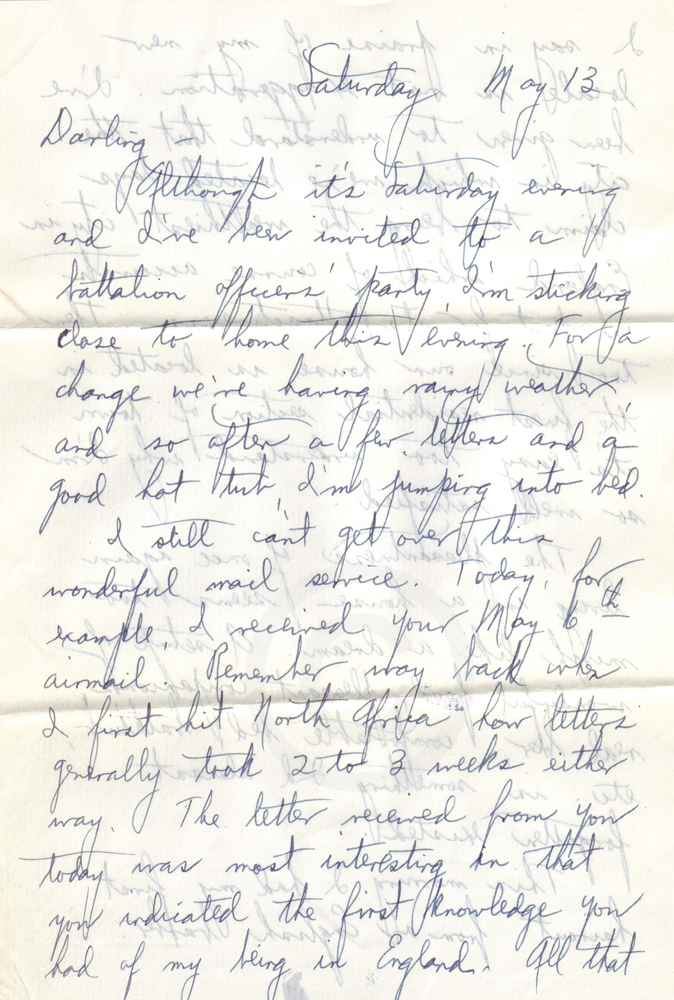 Saturday May 13
Darling -
Although it's Saturday evening
and I've been invited to a
battalion officers' party, I'm sticking
close to home this evening. For a
change we're having rainy weather,
and so after a few letters and a
good hot tub, I'm jumping into bed.
I still can't get over this
wonderful mail service. Today, for
example, I received your May 6th
airmail. Remember way back when
I first hit North Africa how letters
generally took 2 to 3 weeks either
way. The letter received from you
today was most interesting in that
you indicated the first knowledge you
had of my being in England. All that